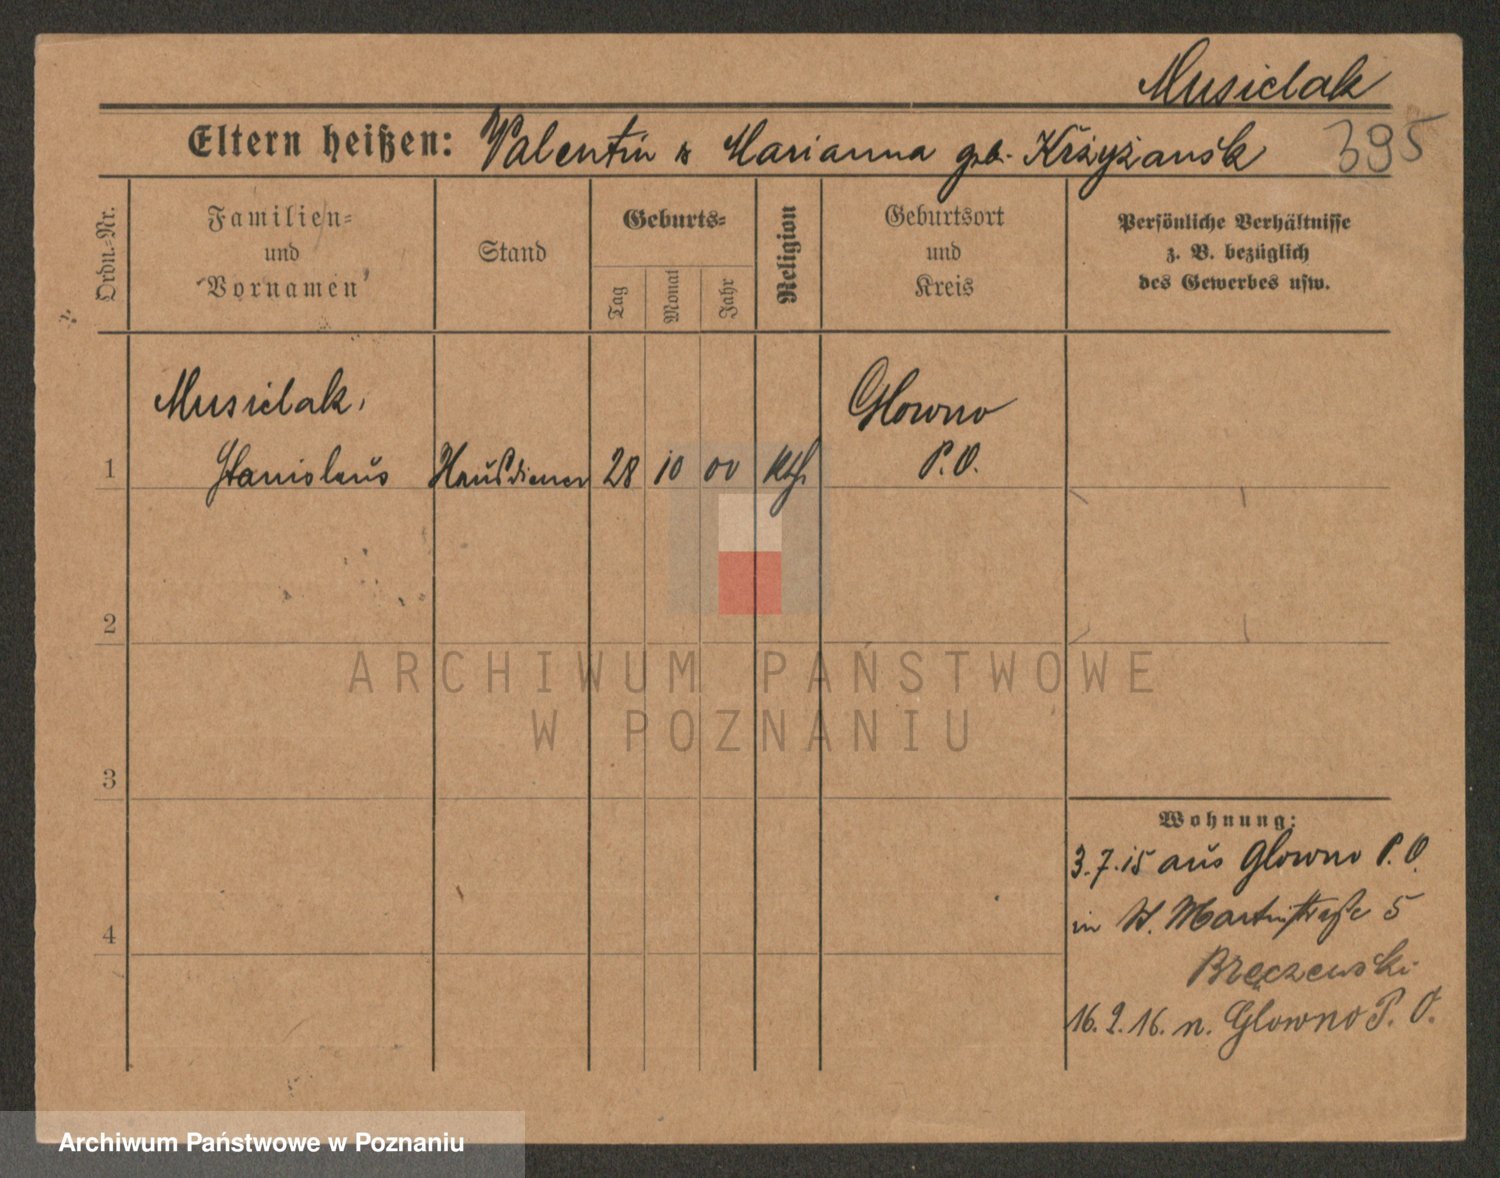 Musielak
Eltern heißen: Valentin & Marianna geb. Krżyżansk 395
Ordn.-Nr.
Familien-
und
Vornamen
Stand
Geburts-
Tag
Monat
Jahr
Religion
Geburtsort
und
Kreis
Persönliche Verhältnisse
z. B. bezüglich
des Gewerbes usw.
Musielak,
Glowno
1 Stanislaus Hausdiener 28 10 00 kth. P. O.
2
ARCHIWUM PAŃSTWOWE
W POZNANIU
3
Wohnung:
3.7.15 aus Glowno P. O.
4
in St. Martinstraße 5
Bręczewski
16.2.16. n. Glowno P. O.
Archiwum Państwowe w Poznaniu